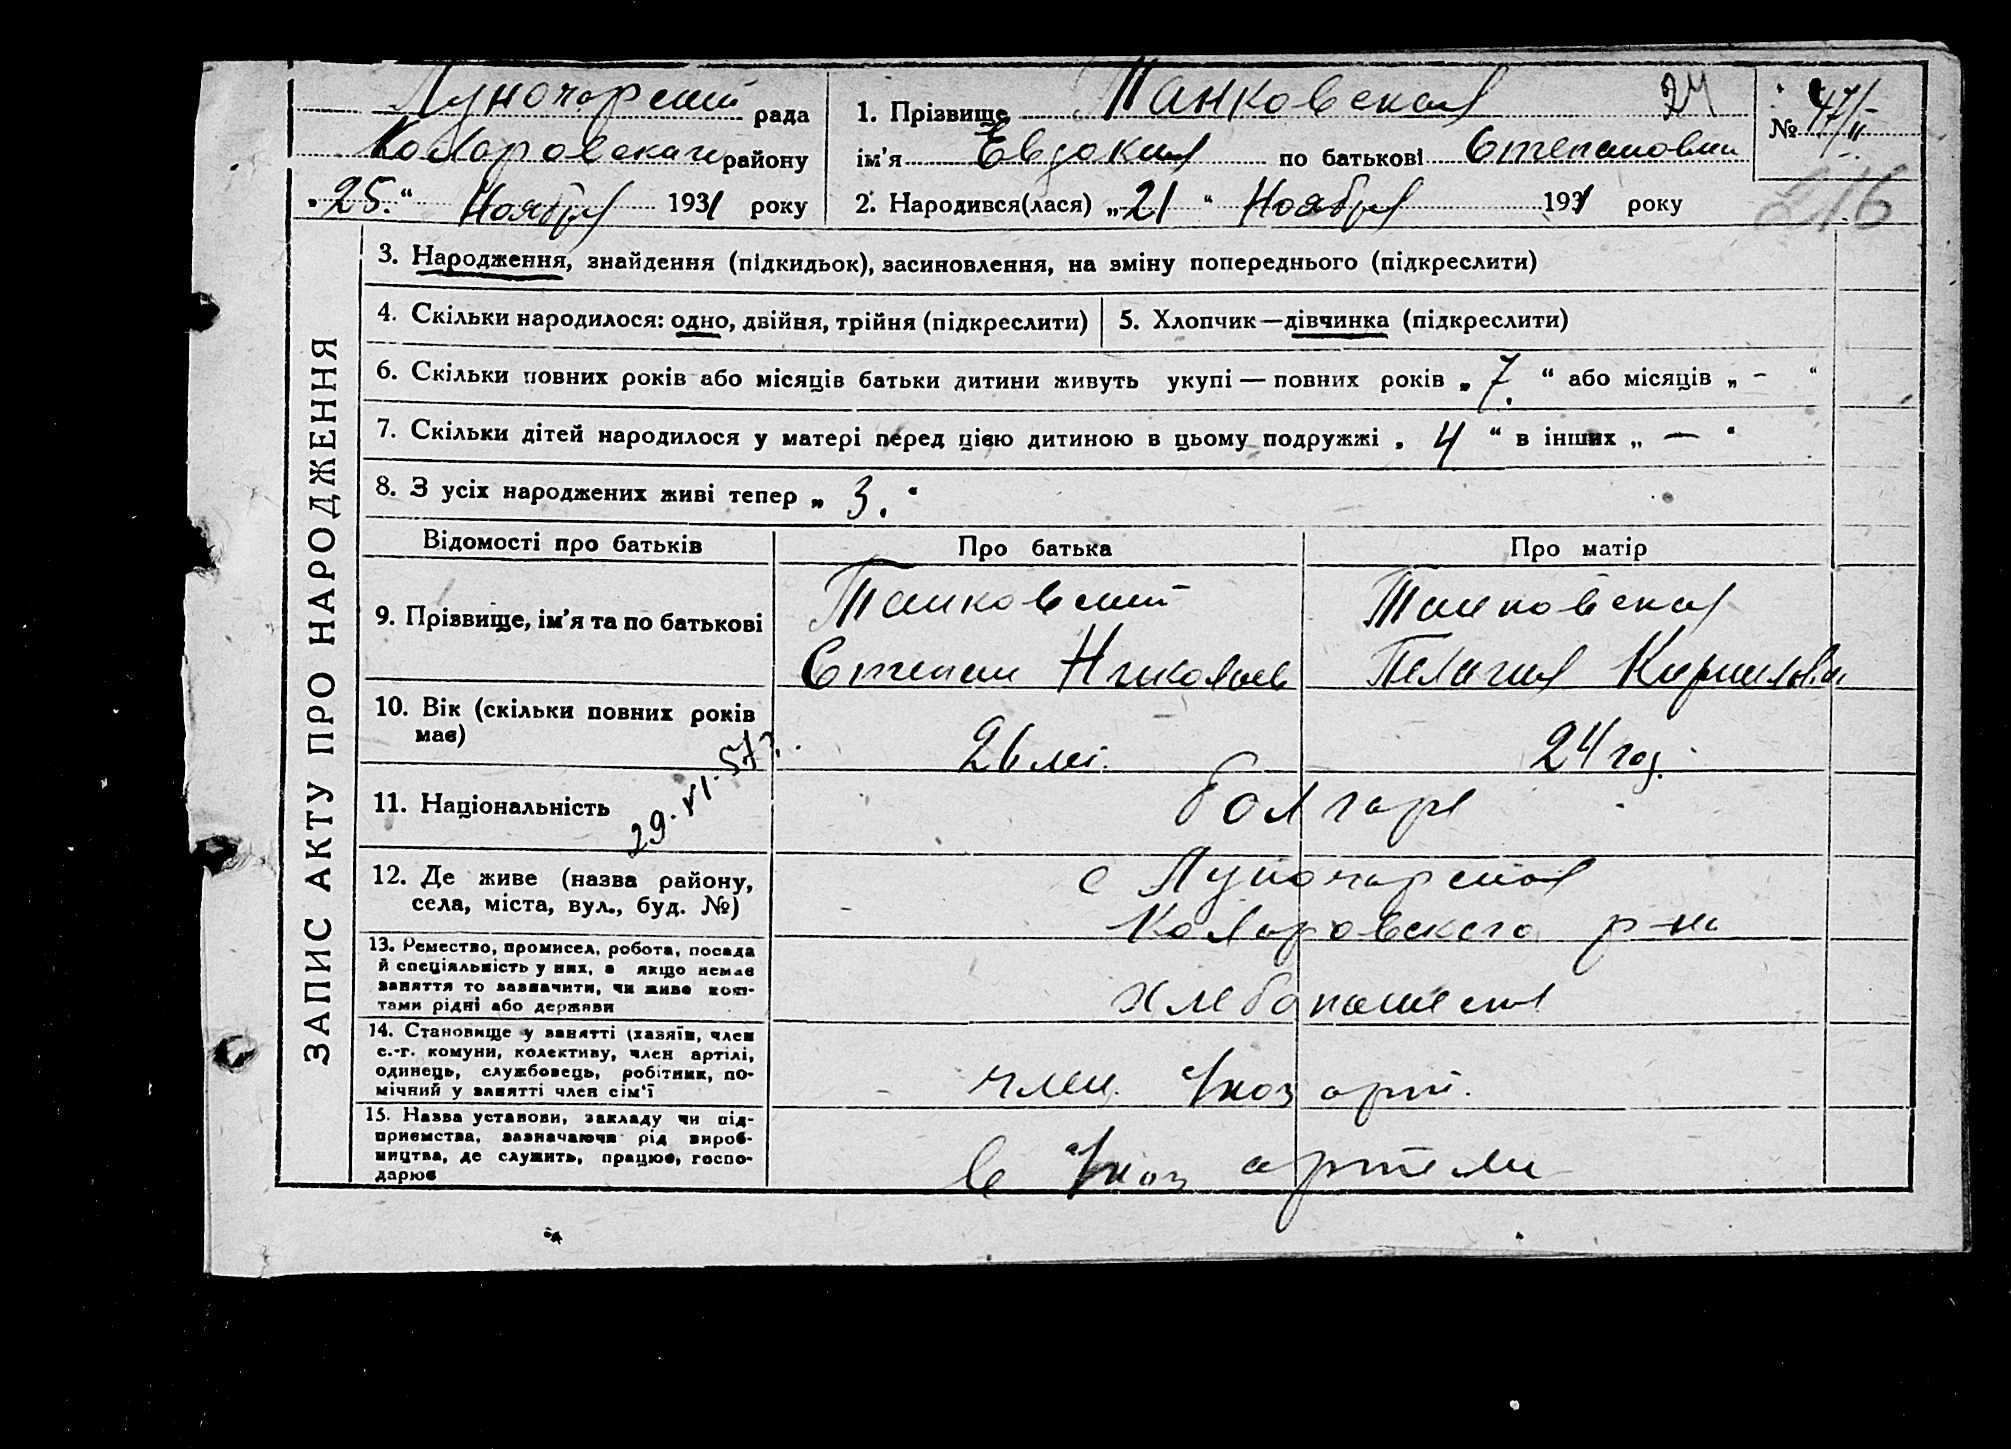 Луночарский рада
Коларовского району
„25.“ Ноября 1931 року
1. Прізвище Танковская 24
ім’я Евдокия по батькові Степановна
2. Народився(лася) „21“ Ноября 1931 року
№ 47/II
216
ЗАПИС АКТУ ПРО НАРОДЖЕННЯ
3. Народження, знайдення (підкидьок), засиновлення, на зміну попереднього (підкреслити)
4. Скільки народилося: одно, двійня, трійня (підкреслити)
5. Хлопчик—дівчинка (підкреслити)
6. Скільки повних років або місяців батьки дитини живуть укупі — повних років „7.“ або місяців „-“
7. Скільки дітей народилося у матері перед цією дитиною в цьому подружжі „4“ в інших „—“
8. З усіх народжених живі тепер „3.“
Відомості про батьків Про батька Про матір
9. Прізвище, ім’я та по батькові
Танковский
Степан Николаев
Танковская
Пелагия Кирилов.
10. Вік (скільки повних років
має)
26 лі. 24 год.
11. Національність
29.VI.57г.
болгаре
12. Де живе (назва району,
села, міста, вул., буд. №)
с Луночарская
Коларовского р-на
13. Ремество, промисел, робота, посада
й спеціяльність у них, а якщо немає
заняття то зазначити, чи живе кош-
тами рідні або держави
14. Становище у занятті (хазяїн, член
с.-г. комуни, колективу, член артілі,
одинець, службовець, робітник, по-
мічний у занятті член сім’ї
член с/хоз арт.
15. Назва установи, закладу чи під-
приємства, зазначаючи рід вироб-
ництва, де служить, працює, госпо-
дарює
в с/хоз артели